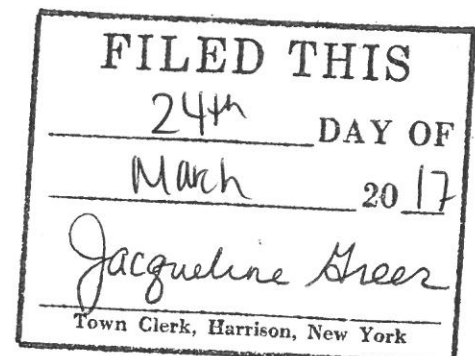 FILED THIS
24th DAY OF
March 20 17
Jacqueline Greer
Town Clerk, Harrison, New York